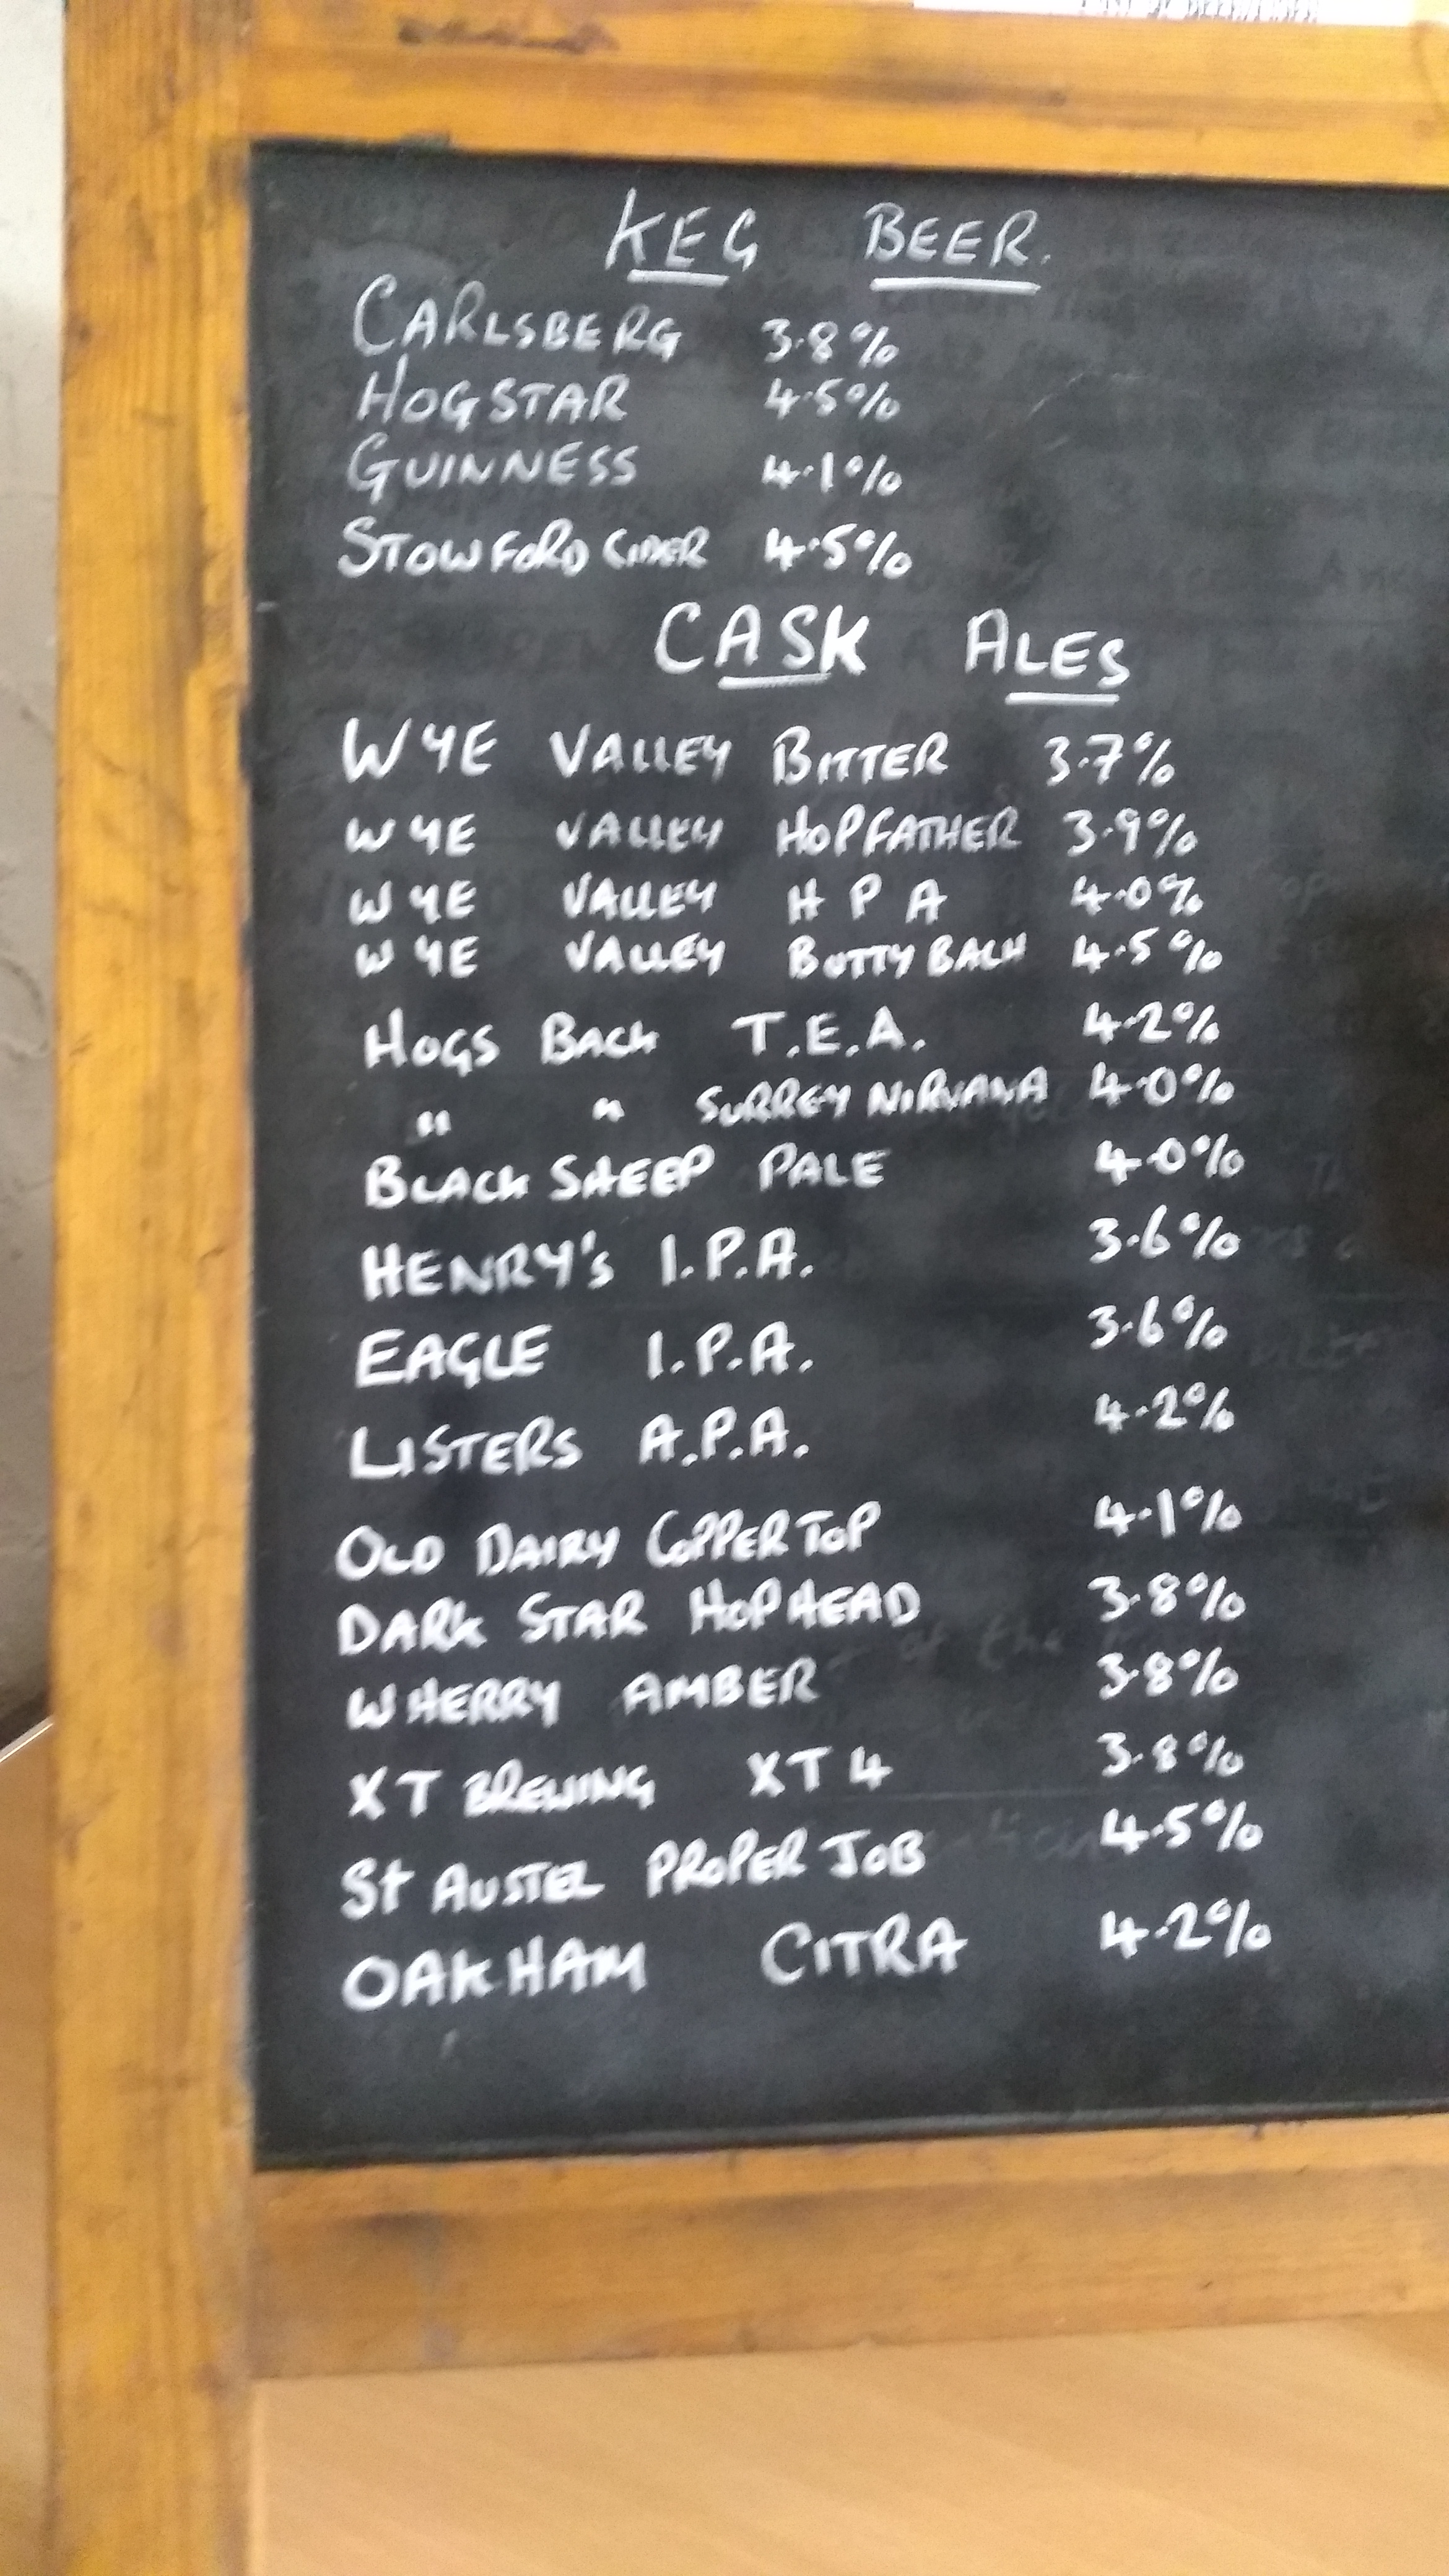 KEG BEER.
CARLSBERG 3.8%
HOGSTAR 4.5%
GUINNESS 4.1%
STOWFORD CIDER 4.5%
CASK ALES
WYE VALLEY BITTER 3.7%
WYE VALLEY HOPFATHER 3.9%
WYE VALLEY H P A 4.0%
WYE VALLEY BUTTY BACH 4.5%
HOGS BACK T.E.A. 4.2%
" " SURREY NIRVANA 4.0%
BLACK SHEEP PALE 4.0%
HENRY'S I.P.A. 3.6%
EAGLE I.P.A. 3.6%
LISTERS A.P.A. 4.2%
OLD DAIRY COPPER TOP 4.1%
DARK STAR HOPHEAD 3.8%
WHERRY AMBER 3.8%
XT BREWING XT4 3.8%
St AUSTEL PROPER JOB 4.5%
OAKHAM CITRA 4.2%